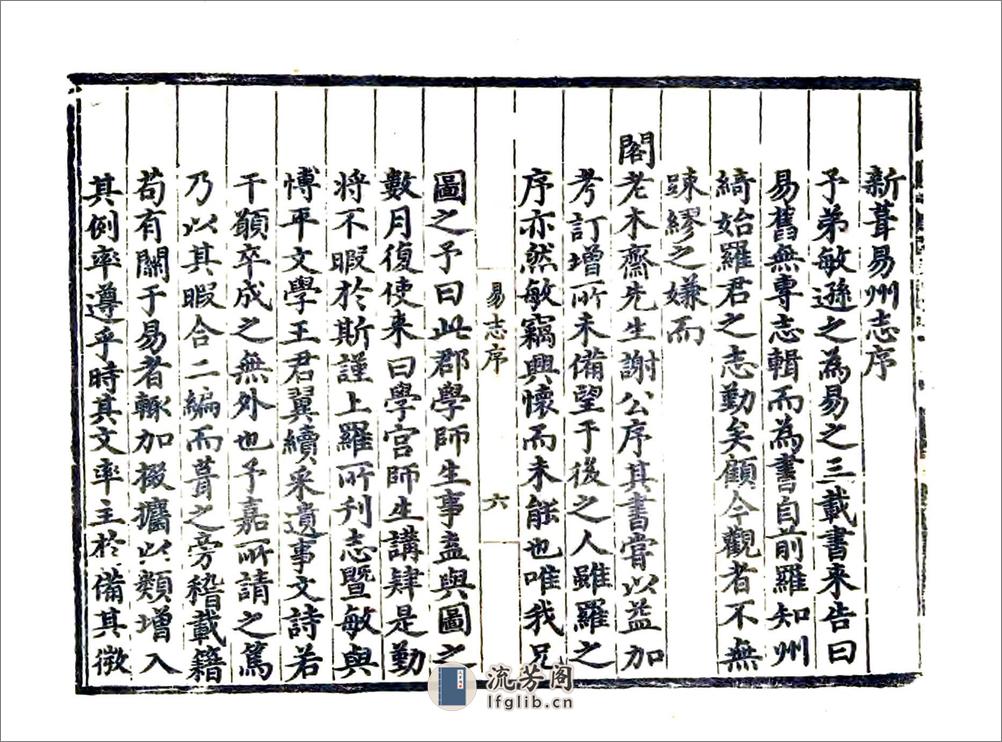 新葺易州志序
予弟敏遜之為易之三載書來告曰
易舊無專志輯而為書自前羅知州
綺始羅君之志勤矣顧今觀者不無
踈繆之嫌而
閣老木齋先生謝公序其書嘗以益加
考訂增所未備望于後之人雖羅之
序亦然敏竊興懷而未能也唯我兄
易志序
六
圖之予曰此郡學師生事盍與圖之
數月復使來曰學宫師生講肄是勤
將不暇於斯謹上羅所刋志暨敏與
愽平文學王君翼續采遺事文詩若
干願卒成之無外也予嘉所請之篤
乃以其暇合二編而葺之旁稽載籍
苟有關于易者輙加掇攟以類增入
其例率遵乎時其文率主於備其徴
流芳阁
lfglib.cn